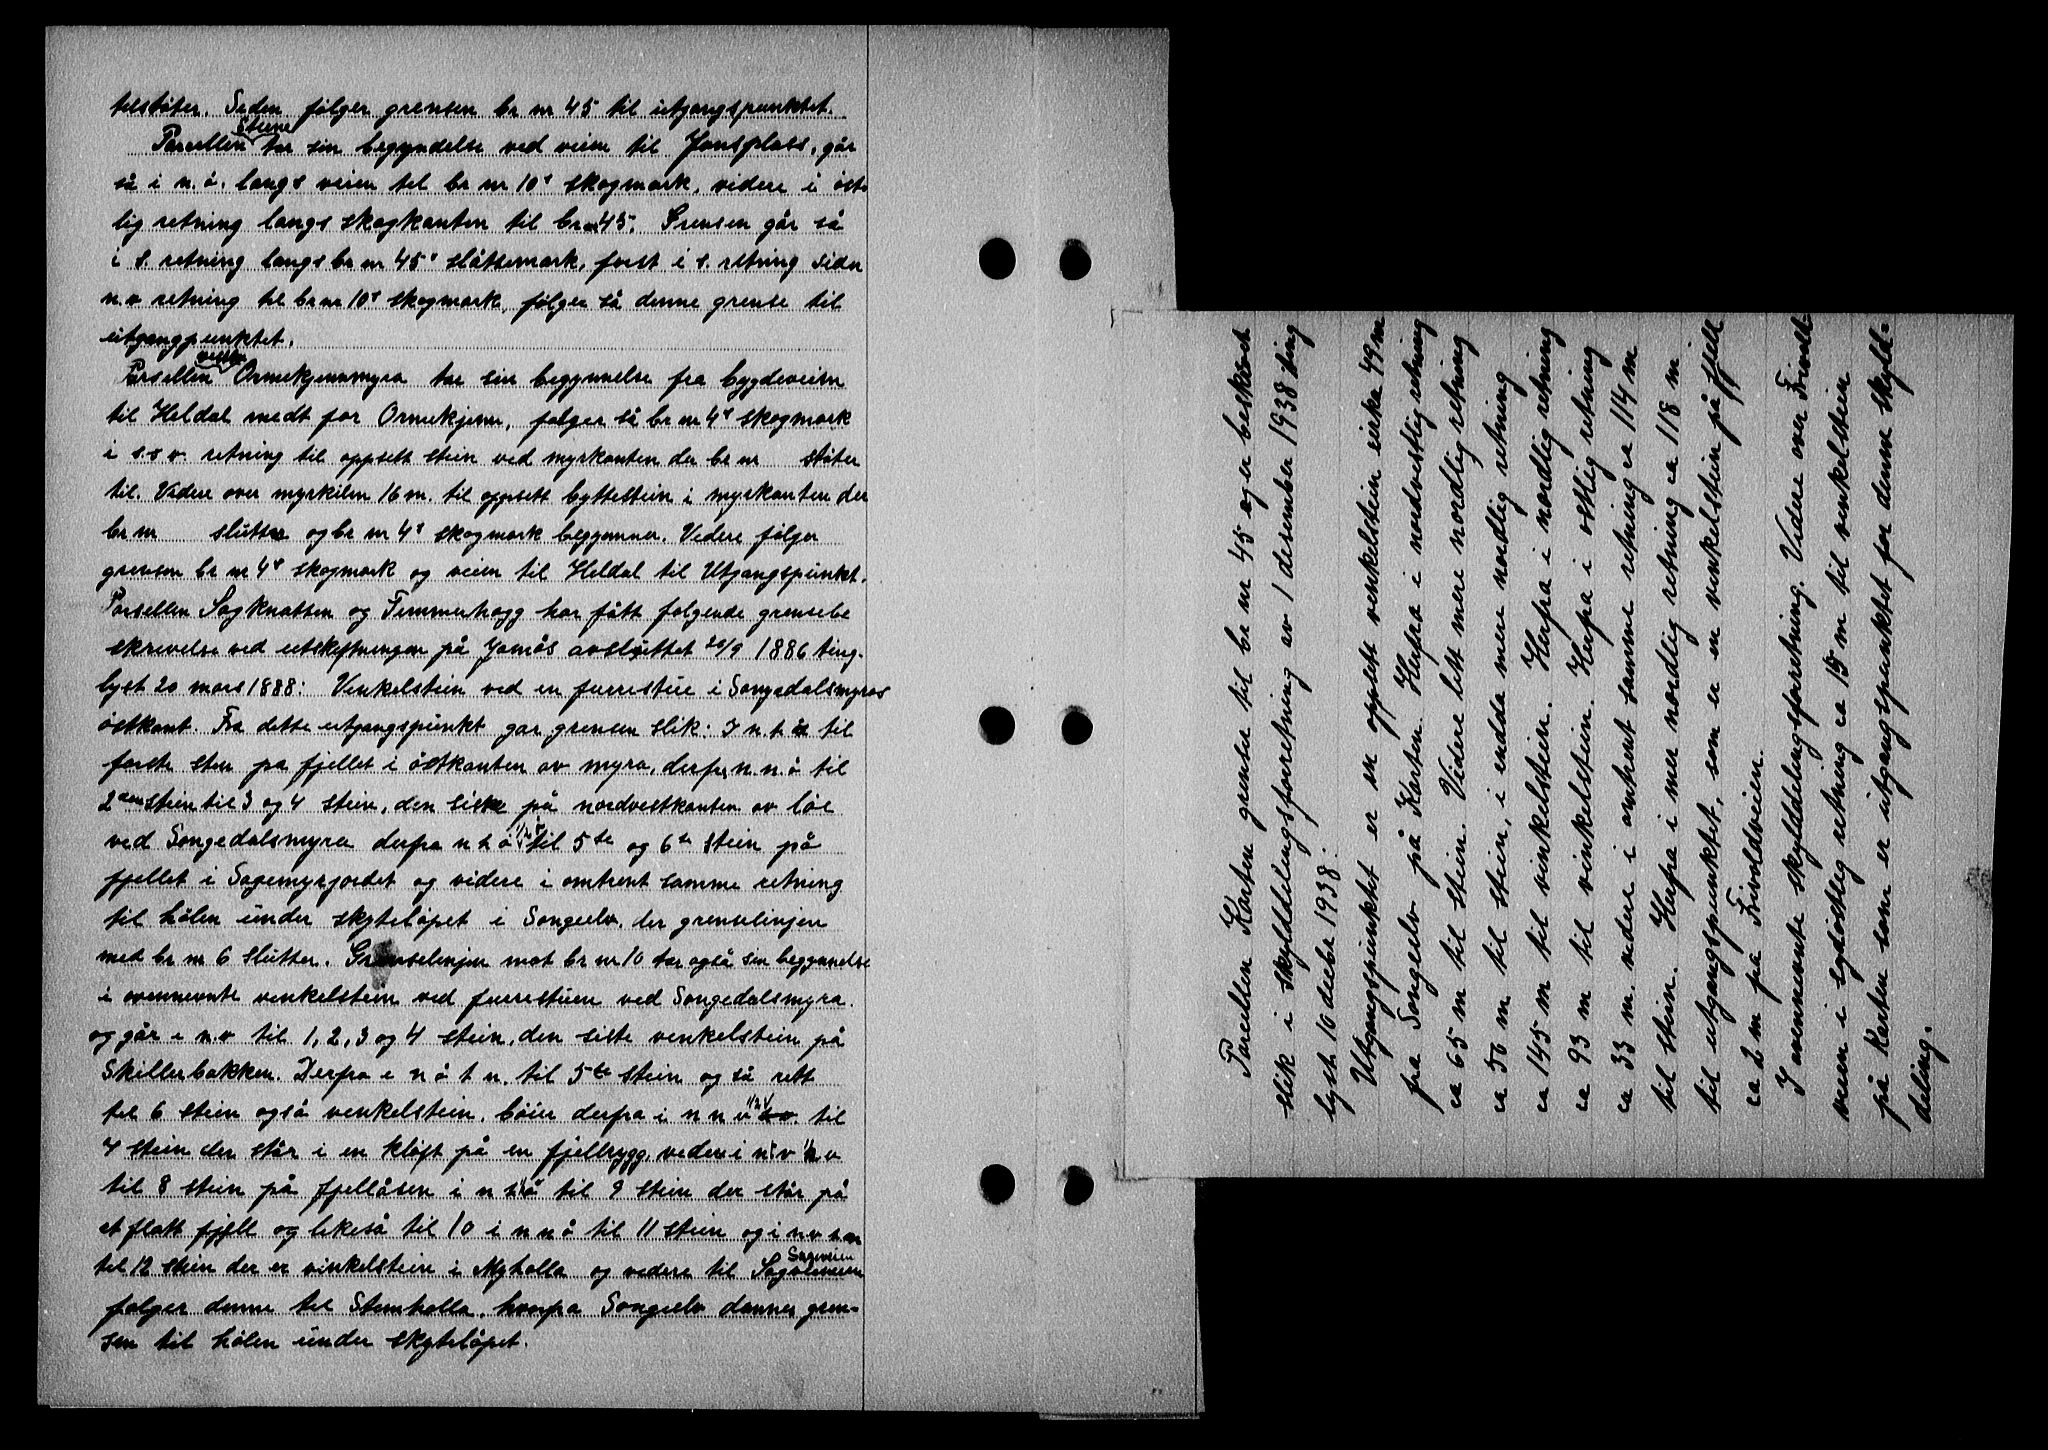 tilstøter. Siden følger grensen br nr 45 til utgangspunktet.
Stiene
Parsellen tar sin begynnelse ved veien til Jonsplass, går
så i n.ø. langs veien til br nr 10s skogmark, videre i øst-
lig retning langs skogkanten til br nr 45. Grensen går så
i s. retning langs br nr 45s slåttemark, først i s. retning siden
n.v retning til br nr 10s skogmark, følger så denne grense til
utgangpunktet.
veien
Parsellen Ormekjennmyra tar sin begynnelse fra bygdeveien
til Heldal medt for Ormekjenn, følger så br nr 4s skogmark
i s.s v. retning til oppsett stein ved myrkanten der br nr støter
til. Videre over myrkilen 16 m. til oppsett byttestein i myrkanten der
br nr slutter og br nr 4s skogmark begynner. Videre følger
grensen br nr 4s skogmark og veien til Heldal til Utgangspunkt.
Parsellen Sagknatten og Timmerhogg har fått følgende grensebe
skrivelse ved utskiftningen på Jomås avsluttet 20/9 1886 ting-
lyst 20 mars 1888: Vinkelstein ved en furrestue i Songedalsmyras
østkant. Fra dette utgangspunkt går grensen slik: I n.t.ø til
første sten på fjellet i østkanten av myra, derfra n.n.ø til
2den stein til 3 og 4 stein, den siste på nordvestkanten av løe
ved Songedalsmyra derfra n t ø 1/2 ø til 5te og 6te stein på
fjellet i Sagemyrjordet og videre i omtrent samme retning
til hølen under skyteløpet i Songeelv, der grenselinjen
med br nr 6 slutter. Grenselinjen mot br nr 10 tar også sin begynnelse
i ovennevnte vinkelstein ved furrestuen ved Songedalsmyra.
og går i n.v til 1, 2, 3 og 4 stein, den siste vinkelstein på
Skillerbakken. Derfra i n ø t n. til 5te stein og så rett
til 6 stein også vinkelstein, bøier derfra i n n v 1/2 v til
7 stein der står i en kløft på en fjellrygg, videre i n v 1/2 v
til 8 stein på fjellåsen i n t ø til 9 stein der står på
et flatt fjell og likeså til 10 i n n ø til 11 stein og i n v t n
Sagveien
til 12 stein der er vinkelstein i Myholla og videre til
følger denne til Stemholla, hvorfra Songeelv danner gren-
sen til hølen under skyteløpet.
Parsellen Karten grense til br nr 45 og er beskrevet
slik i skylddelingsforretning av 1 desember 1938 ting
lyst 10 decbr 1938:
Utgangspunktet er en oppsett vinkelstein cirka 49 m
fra Songeelv på Karten. Herfra i nordvestlig retning
ca 65 m til stein. Videre litt mere nordlig retning
ca 56 m til stein, i endda mere nordlig retning
ca 145 m til vinkelstein. Herfra i nordlig retning
ca 93 m til vinkelstein. Herfra i østlig retning
ca 33 m. videre i omtrent samme retning ca 114 m
til stein. Herfra i mer nordlig retning ca 118 m
til utgangspunktet, som er en vinkelstein på fjell
ca 2 m fra Frivoldveien.
I ovennevnte skylddelingsforretning. Videre over Frivold-
veien i sydøstlig retning ca 15 m til vinkelstein
på Karten som er utgangspunktet for denne skyld-
deling.